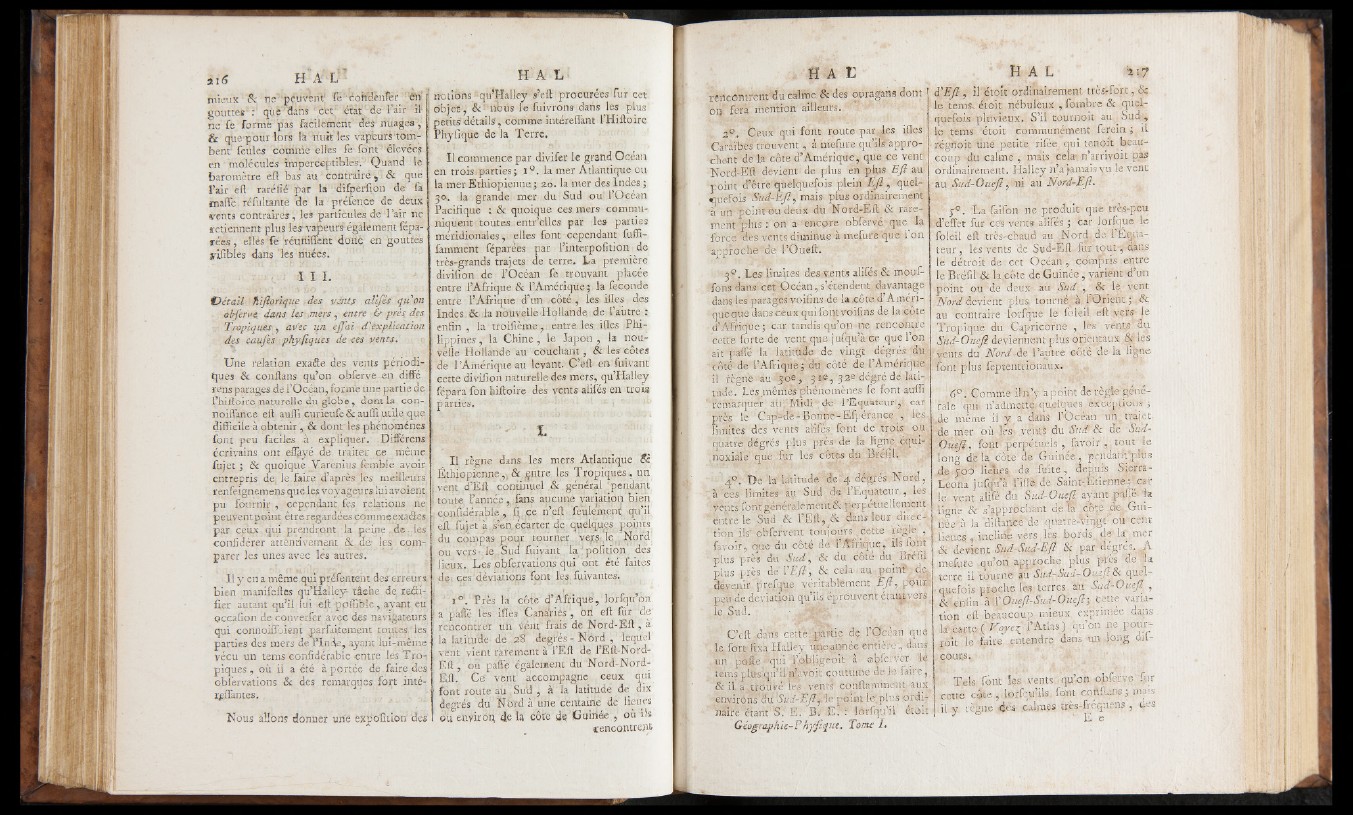 216 HAL
mieux & ne peuvent ſe condenſer en
gouttes : que dans cet état de l'air il
ne ſe forme pas facilement des nuages,
& que pour lors la nuit les vapeurs tom-
bent ſeules comme elles ſe ſont élevées
en molécules imperceptibles. Quand le
baromètre eſt bas au contraire, & que
l'air eſt raréfié par la diſperſion de ſa
maſſe réſultante de la préſence de deux
vents contraires, les particules de l'air ne
retiennent plus les vapeurs également ſépa-
rées, elles ſe réuniſſent donc en gouttes
viſibles dans les nuées.
III.
Détail hiſtorique des vents aliſés qu'on
obſerve dans les mers, entre & près des
Tropiques, avec un eſſai d'explication
des cauſes phyſiques de ces vents.
Une relation exacte des vents périodi-
ques & conſtans qu'on obſerve en diffé-
rens parages de l'Océan, forme une partie de
l'hiſtoire naturelle du globe, dont la con-
noiſſance eſt auſſi curieuſe & auſſi utile que
difficile à obtenir, & dont les phénomènes
ſont peu faciles à expliquer. Différens
écrivains ont eſſayé de traiter ce même
ſujet ; & quoique Varenius ſemble avoir
entrepris de le faire d'après les meilleurs
renſeignemens que les voyageurs lui avoient
pu fournir, cependant ſes relations ne
peuvent point être regardées comme exactes
par ceux qui prendront la peine de les
conſidérer attentivement & de les com-
parer les unes avec les autres.
Il y en a même qui préſentent des erreurs
bien manifeſtes qu'Halley tâche de recti-
fier autant qu'il lui eſt poſſible, ayant eu
occaſion de converſer avec des navigateurs
qui connoiſſoient parfaitement toutes les
parties des mers de l'Inde, ayant lui-même
vécu un tems conſidérable entre les Tro-
piques, où il a été à portée de faire des
obſervations & des remarques fort inté-
reſſantes.
Nous allons donner une expoſition des
HAL
notions qu'Halley s'eſt procurées ſur cet
objet, & nous le ſuivrons dans les plus
petits détails, comme intéreſſant l'Hiſtoire
Phyſique de la Terre.
Il commence par diviſer le grand Océan
en trois parties ; 1°. la mer Atlantique ou
la mer Ethiopienne ; 2o. la mer des Indes ;
3o. la grande mer du Sud ou l'Océan
Pacifique : & quoique ces mers commu-
niquent toutes entr'elles par les parties
méridionales, elles ſont cependant ſuffi-
ſamment ſéparées par l'interpoſition de
très-grands trajets de terre. La première
diviſion de l'Océan ſe trouvant placée
entre l'Afrique & l'Amérique ; la ſeconde
entre l'Afrique d'un côté, les iſles des
Indes & la nouvelle Hollande de l'autre :
enfin, la troiſième, entre les iſles Phi-
lippines, la Chine, le Japon, la nou-
velle Hollande au couchant, & les côtes
de l'Amérique au levant. C'eſt en ſuivant
cette diviſion naturelle des mers, qu'Halley
ſépara ſon hiſtoire des vents aliſés en trois
parties.
I.
Il règne dans les mers Atlantique &
Ethiopienne, & entre les Tropiques, un
vent d'Eſt continuel & général pendant
toute l'année, ſans aucune variation bien
conſidérable, ſi ce n'eſt ſeulement qu'il
eſt ſujet à s'en écarter de quelques points
du compas pour tourner vers le Nord
ou vers le Sud ſuivant la poſition des
lieux. Les obſervations qui ont été faites
de ces déviations ſont les ſuivantes.
1°. Près la côte d'Afrique, lorſqu'on
a paſſé les iſles Canaries, on eſt ſûr de
rencontrer un vent frais de Nord-Eſt, à
la latitude de 28 degrés - Nord, lequel
vent vient rarement à l'Eſt de l'Eſt-Nord-
Eſt, ou paſſe également du Nord-Nord-
Eſt. Ce vent accompagne ceux qui
font route au Sud, à la latitude de dix
degrés du Nord à une centaine de lieues
ou environ de la côte de Guinée, où ils
rencontrent
HAL
rencontrent du calme & des ouragans dont
on fera mention ailleurs.
2°. Ceux qui font route par les iſles
Caraïbes trouvent, à meſure qu'ils appro-
chent de la côte d'Amérique, que ce vent
Nord-Eſt devient de plus en plus Eſt au
point d'être quelquefois plein Eſt, quel-
quefois Sud-Eſt, mais plus ordinairement
à un point ou deux du Nord-Eſt & rare-
ment plus : on a encore obſervé que la
force des vents diminue à meſure que l'on
approche de l'Oueſt.
3°. Les limites des vents aliſés & mouſ-
ſons dans cet Océan, s'étendent davantage
dans les parages voiſins de la côte d'Améri-
que que dans ceux qui ſont voiſins de la côte
d'Afrique ; car tandis qu'on ne rencontre
cette ſorte de vent que juſqu'à ce que l'on
ait paſſé la latitude de vingt dégrés du
côté de l'Afrique ; du côté de l'Amérique
il règne au 30e, 31e, 32e dégré de lati-
tude. Les mêmes phénomènes ſe font auſſi
remarquer au Midi de l'Equateur, car
près le Cap-de-Bonne-Eſpérance, les
limites des vents aliſés ſont de trois ou
quatre dégrés plus près de la ligne équi-
noxiale que ſur les côtes du Bréſil.
4°. De la latitude de 4 dégrés Nord,
à ces limites au Sud de l'Equateur, les
vents ſont généralement & perpétuellement
entre le Sud & l'Eſt, & dans leur direc-
tion ils obſervent toujours cette règle,
ſavoir, que du côté de l'Afrique, ils ſont
plus près du Sud, & du côté du Bréſil
plus près de l'Eſt, & cela au point de
devenir preſque véritablement Eſt, pour
peu de déviation qu'ils éprouvent étant vers
le Sud.
C'eſt dans cette partie de l'Océan que
le ſort fixa Halley une année entière, dans
un poſte qui l'obligeoit à obſerver le
tems plus qu'il n'avoit coutume de le faire,
& il a trouvé les vents conſtamment aux
environs du Sud-Eſt, le point le plus ordi-
naire étant S. E. B. E. : lorſqu'il étoit
Géographie-Phyſique. Tome I.
HAL 217
d'Eſt, il étoit ordinairement très-fort, &
le tems étoit nébuleux, ſombre & quel-
quefois pluvieux. S'il tournoit au Sud,
le tems étoit communément ſerein ; il
régnoit une petite riſée qui tenoit beau-
coup du calme, mais cela n'arrivoit pas
ordinairement. Halley n'a jamais vu le vent
au Sud-Oueſt, ni au Nord-Eſt.
5°. La ſaiſon ne produit que très-peu
d'effet ſur ces vents aliſés ; car lorſque le
ſoleil eſt très-chaud au Nord de l'Equa-
teur, les vents de Sud-Eſt ſur tout, dans
le détroit de cet Océan, compris entre
le Bréſil & la côte de Guinée, varient d'un
point ou de deux au Sud, & le vent
Nord devient plus tourné à l'Orient ; &
au contraire lorſque le ſoleil eſt vers le
Tropique du Capricorne, les vents du
Sud-Oueſt deviennent plus orientaux & les
vents du Nord de l'autre côté de la ligne
ſont plus ſeptentrionaux.
6°. Comme il n'y a point de règle géné-
rale qui n'admette quelques exceptions,
de même il y a dans l'Océan un trajet
de mer où les vents du Sud & de Sud-
Oueſt, ſont perpétuels, ſavoir, tout le
long de la côte de Guinée, pendant plus
de 500 lieues de ſuite, depuis Sierra-
Leona juſqu'à l'iſle de Saint-Etienne : car
le vent aliſé du Sud-Oueſt ayant paſſé la
ligne & s'approchant de la côte de Gui-
née à la diſtance de quatre-vingt ou cent
lieues, incline vers les bords de la mer
& devient Sud-Sud-Eſt & par dégrés. A
meſure qu'on approche plus près de la
terre il tourne au Sud-Sud-Oueſt & quel-
quefois proche les terres au Sud-Oueſt,
& enfin à l'Oueſt-Sud-Oueſt ; cette varia-
tion eſt beaucoup mieux exprimée dans
la carte (Voyez l'Atlas) qu'on ne pour-
roit le faire entendre dans un long diſ-
cours.
Tels ſont les vents qu'on obſerve ſur
cette côte, lorſqu'ils ſont conſtans ; mais
il y règne des calmes très-fréquens, des
E e